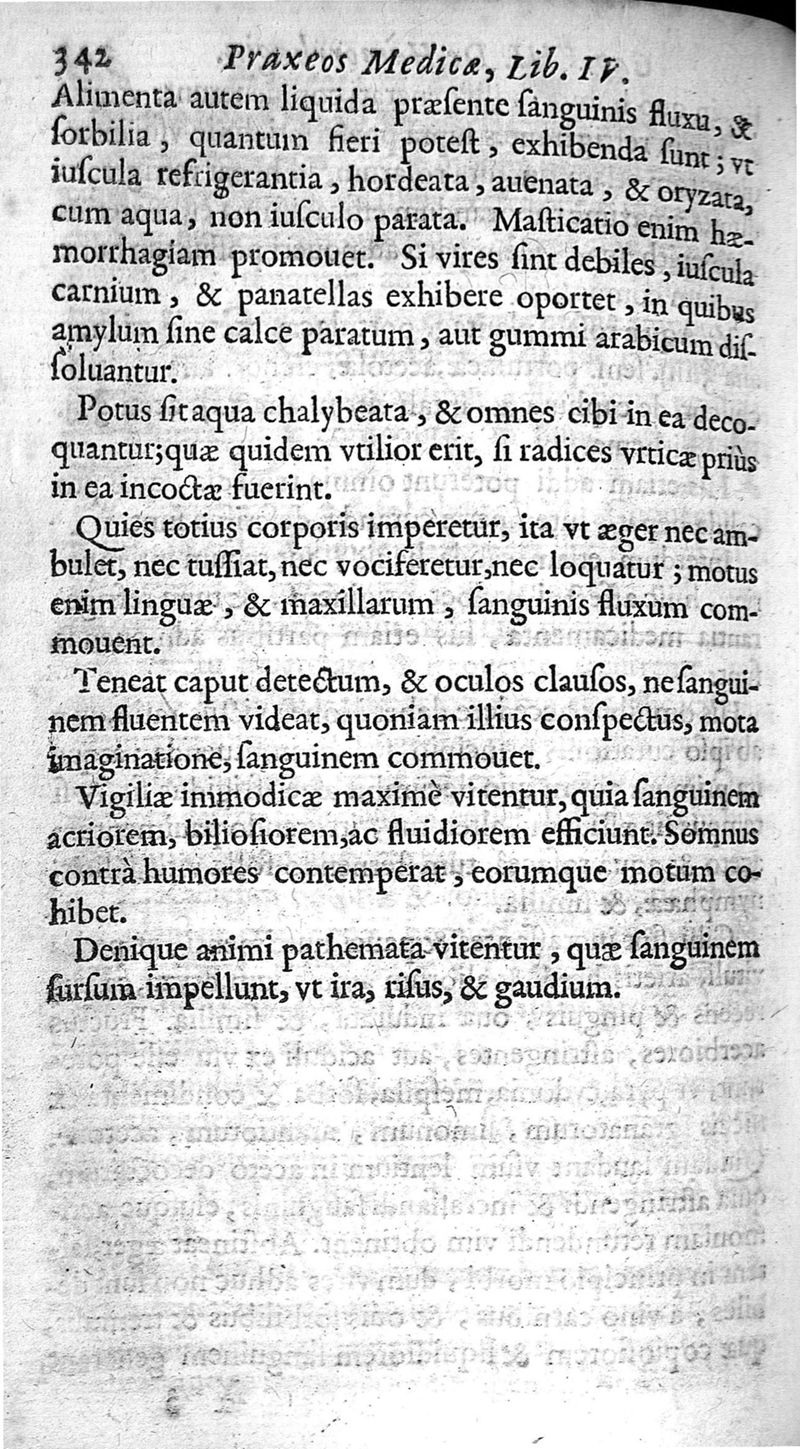 342 Praxeos Medicæ, Lib. IV.
Alimenta autem liquida præſente ſanguinis fluxu, &
ſorbilia, quantum fieri poteſt, exhibenda ſunt; vt
iuſcula refrigerantia, hordeata, auenata, & oryzata,
cum aqua, non iuſculo parata. Maſticatio enim hæ-
morrhagiam promouet. Si vires ſint debiles, iuſcula
carnium, & panatellas exhibere oportet, in quibus
amylum ſine calce paratum, aut gummi arabicum diſ-
ſoluantur.
Potus ſit aqua chalybeata, & omnes cibi in ea deco-
quantur; quæ quidem vtilior erit, ſi radices vrticæ priùs
in ea incoctæ fuerint.
Quies totius corporis imperetur, ita vt æger nec am-
bulet, nec tuſſiat, nec vociferetur, nec loquatur; motus
enim linguæ, & maxillarum, ſanguinis fluxum com-
mouent.
Teneat caput detectum, & oculos clauſos, ne ſangui-
nem fluentem videat, quoniam illius conſpectus, mota
imaginatione, ſanguinem commouet.
Vigiliæ immodicæ maximè vitentur, quia ſanguinem
acriorem, bilioſiorem, ac fluidiorem efficiunt. Somnus
contrà humores contemperat, eorumque motum co-
hibet.
Denique animi pathemata vitentur, quæ ſanguinem
ſurſum impellunt, vt ira, riſus, & gaudium.